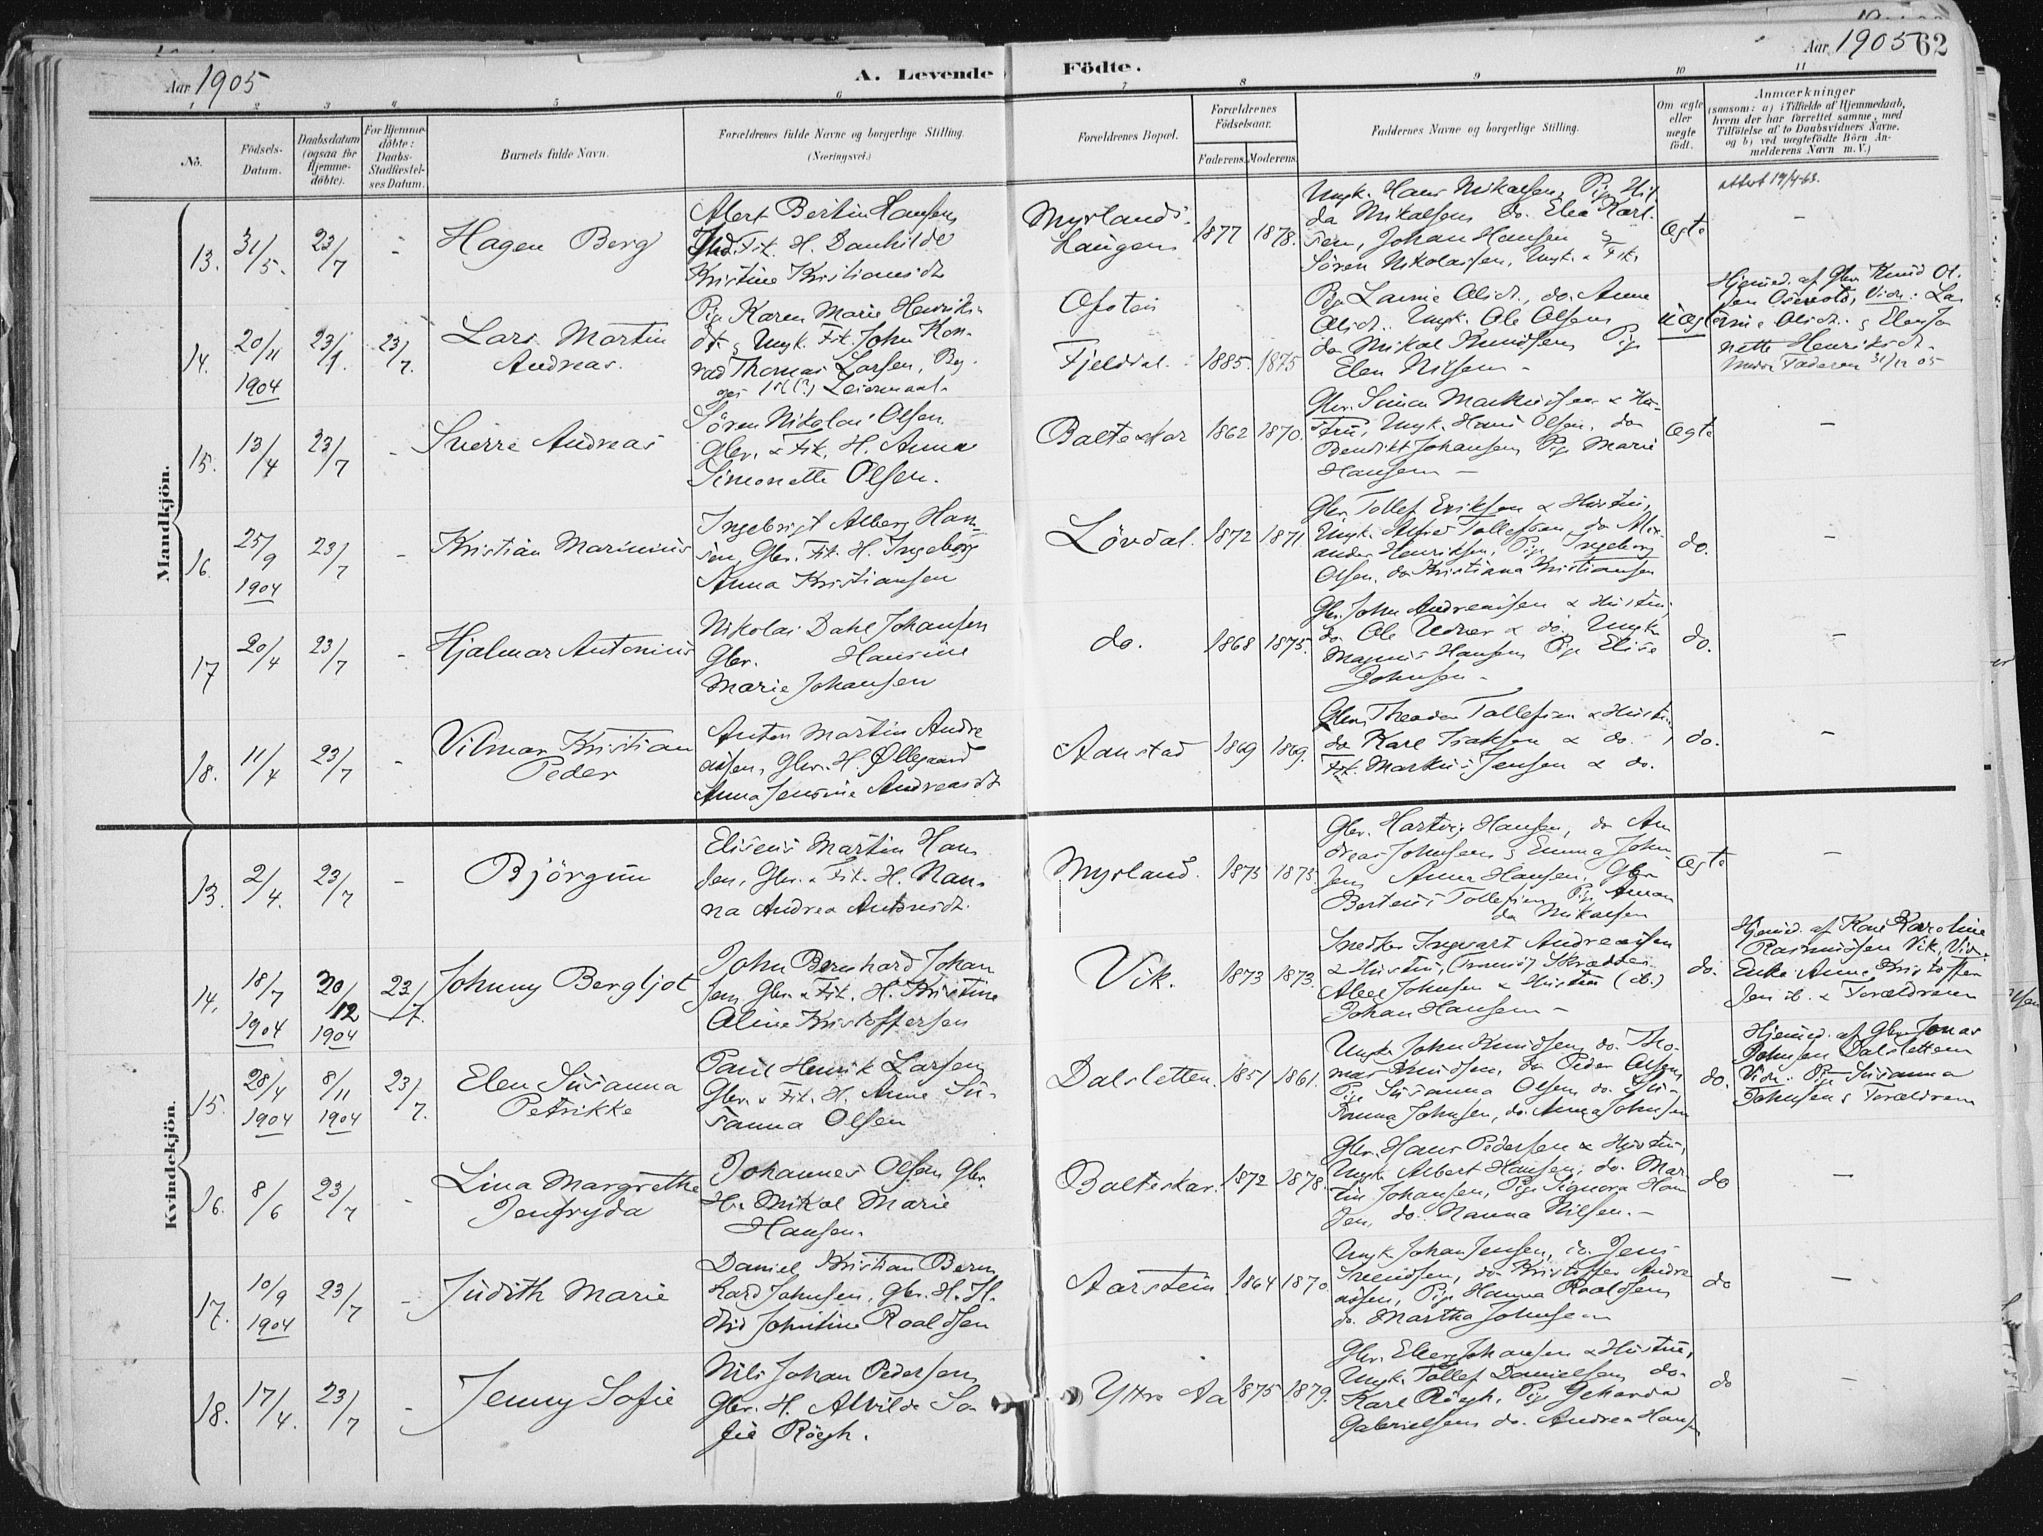 Aar 1905
A. Levende Födte.
Aar 1905 62
1 2 3 4 5 6 7 8 9 10 11
No.
Födsels-
Datum.
Daabsdatum
(ogsaa for
Hjemme-
döbte).
For Hjemme-
döbte:
Daabs-
Stadfestel-
ses Datum.
Barnets fulde Navn.
Forældrenes fulde Navne og borgerlige Stilling.
(Næringsvei.)
Forældrenes Bopæl.
Forældrenes
Födselsaar.
Faderens. Moderens.
Faddernes Navne og borgerlige Stilling.
Om ægte
eller
uægte
födt.
Anmærkninger
(saasom: a) i Tilfælde af Hjemmedaab,
hvem der har forrettet samme, med
Tilföielse af to Daabsvidners Navne.
og b) ved uægtefödte Börn An-
melderens Navn m. V.)
Mandkjön.
attest 19/4-63.
13. 31/5. 23/7 -
Hagen Berg
Albert Bertin Hansen
Fik. H. Danhilde
Kristine Kristiansdt
Myrlands-
haugen
1877 1878.
Ungk. Hans Mikalsen, Pige Hil-
da Mikalsen do. Elea Karl-
sen, Johan Hansen &
Sören Nikolaisen, Ungk. & Fik.
ægte
-
14. 20/11 1904 23/1. 23/7.
Lars Martin
Andreas.
Pige Karen Marie Henriks-
dt. & Ungk. Fik. John Kon-
rad Thomas Larsen, Beg-
ges 1st (?) Leiermaal.
Ofstein
Fjelddal.
1885. 1875
Pige Lavine Olsdt., do. Anne
Olsdt. Ungk. Ole Olsen
do Mikal Knudsen Pige
Elen Nilsen -
uægte
Hjemd. af Gbr. Knud Ol-
sen Vidn: La-
vine Olsdt. & Elen Ja-
nette Henriksdt.
Faderen 31/12 05
15. 13/4 23/7 -
Sverre Andreas
Sören Nikolai Olsen
Gbr. & Fik. H. Anna
Simonette Olsen.
Balteskar
1862 1870.
Gbr. Simon Markussen & Hu-
stru, Ungk. Hans Olsen, do
Benedikt Johansen, Pige Marie
Hansen -
ægte
-
16. 25/9 1904 23/7 -
Kristian Marinius
Ingebrigt Alberg Han-
sen, Gbr. Fik. H. Ingeborg
Anna Kristiansen
Lövdal.
1872 1871.
Gbr. Tollef Eriksen & Hustru,
Ungk. Alfred Tollefsen, do Alex-
ander Henriksen, Pige Ingeborg
Olsen, do Kristiana Kristiansen
do.
-
17 20/4 23/7 -
Hjalmar Antonius
Nikolai Dahl Johansen
Gbr. Hansine
Marie Johansen
do.
1868 1875.
Gbr. John Andreassen & Hustru,
do Ole & do, Ungk.
Magnus Hansen Pige Elise
Johnsen -
do.
-
18. 11/4 23/7 -
Vilmar Kristian
Peder
Anton Martin Andre
assen, Gbr. H. Øllegaard
Anna Jensine Andreasdt
Aanstad
1869 1869.
Gbr. Theodor Tollefsen & Hustru,
do Karl Isaksen & do.,
Fik. Markus Jensen & do.
do.
-
Kvindekjön.
13. 2/4. 23/7 -
Björgun
Eliseus Martin Han
sen, Gbr. & Fik. H. Nan-
na Andrea Antonsdt.
Myrland.
1875 1873.
Gbr. Hartvig Hansen, do An
dreas Johnsen & Emma John-
sen Anna Hansen, Gbr.
Berteus Tollefsen, Pige Aman
da Mikalsen
ægte
-
14. 18/7 1904 20/12 1904 23/7.
Johnny Bergljot
John Bernhard Johan
sen, Gbr. & Fik. H. Kristine
Oline Kristoffersen
Vik.
1873 1873.
Snedker Ingvart Andreassen
& Hustru, (Tromsö) Skrædder
Abel Johnsen & Hustru (ib.)
Johan Hansen -
do.
Hjemd. af Kone Karoline
Rasmussen Vik, Vidn.
Enke Anne Kristoffer
sen ib. & Forældrene
15. 28/4 1904 8/11 1904 23/7.
Elen Susanna
Petrikke
Paul Henrik Larsen
Gbr. & Fik. H. Anne Su-
sanna Olsen
Dalsletten.
1851 1861.
Ungk. John Knudsen, do. Tho-
mas Knudsen, do Peder Olsen,
Pige Susanna Olsen do. Su-
sanna Johnsen, do. Anna Johnsen
do.
Hjemd. af Gbr. Jonas
Johnsen Dalsletten
Vidn: Pige Susanna
Johnsen & Forældrene
16. 8/6 23/7 -
Lina Margrethe
Jenfryda
Johannes Olsen Gbr.
H. Mikal Marie
Hansen.
Balteskar.
1872 1878.
Gbr. Hans Pedersen & Hustru,
Ungk. Albert Hansen, do. Mar-
tin Johansen, Pige Signora Han
sen, do. Nanna Nilsen. -
do
-
17. 10/9 1904 23/7 -
Judith Marie
Daniel Kristian Bern
hard Johnsen, Gbr. H. H.
Johntine Roaldsen
Aarstein
1864 1870.
Ungk. Johan Jensen, do. Jens
Svendsen, do Kristoffer Andre
assen, Pige Hanna Roaldsen
do. Martha Johnsen
do
-
18. 17/4. 23/7 -
Jenny Sofie
Nils Johan Pedersen
Gbr. H. Alvilde So
fie Røgh.
Yttre Aa
1875 1879.
Gbr. Johansen & Hustru,
Ungk. Tollef Danielsen do.
Karl Røgh, Pige Geharda
Gabrielsen do. Andrea Hansen
do
-